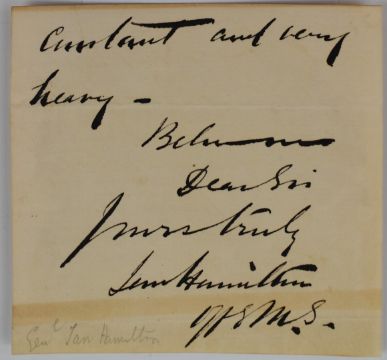 Constant and very
heavy -
Believe me
Dear Sir
Yours truly
Ian Hamilton
Genl Ian Hamilton